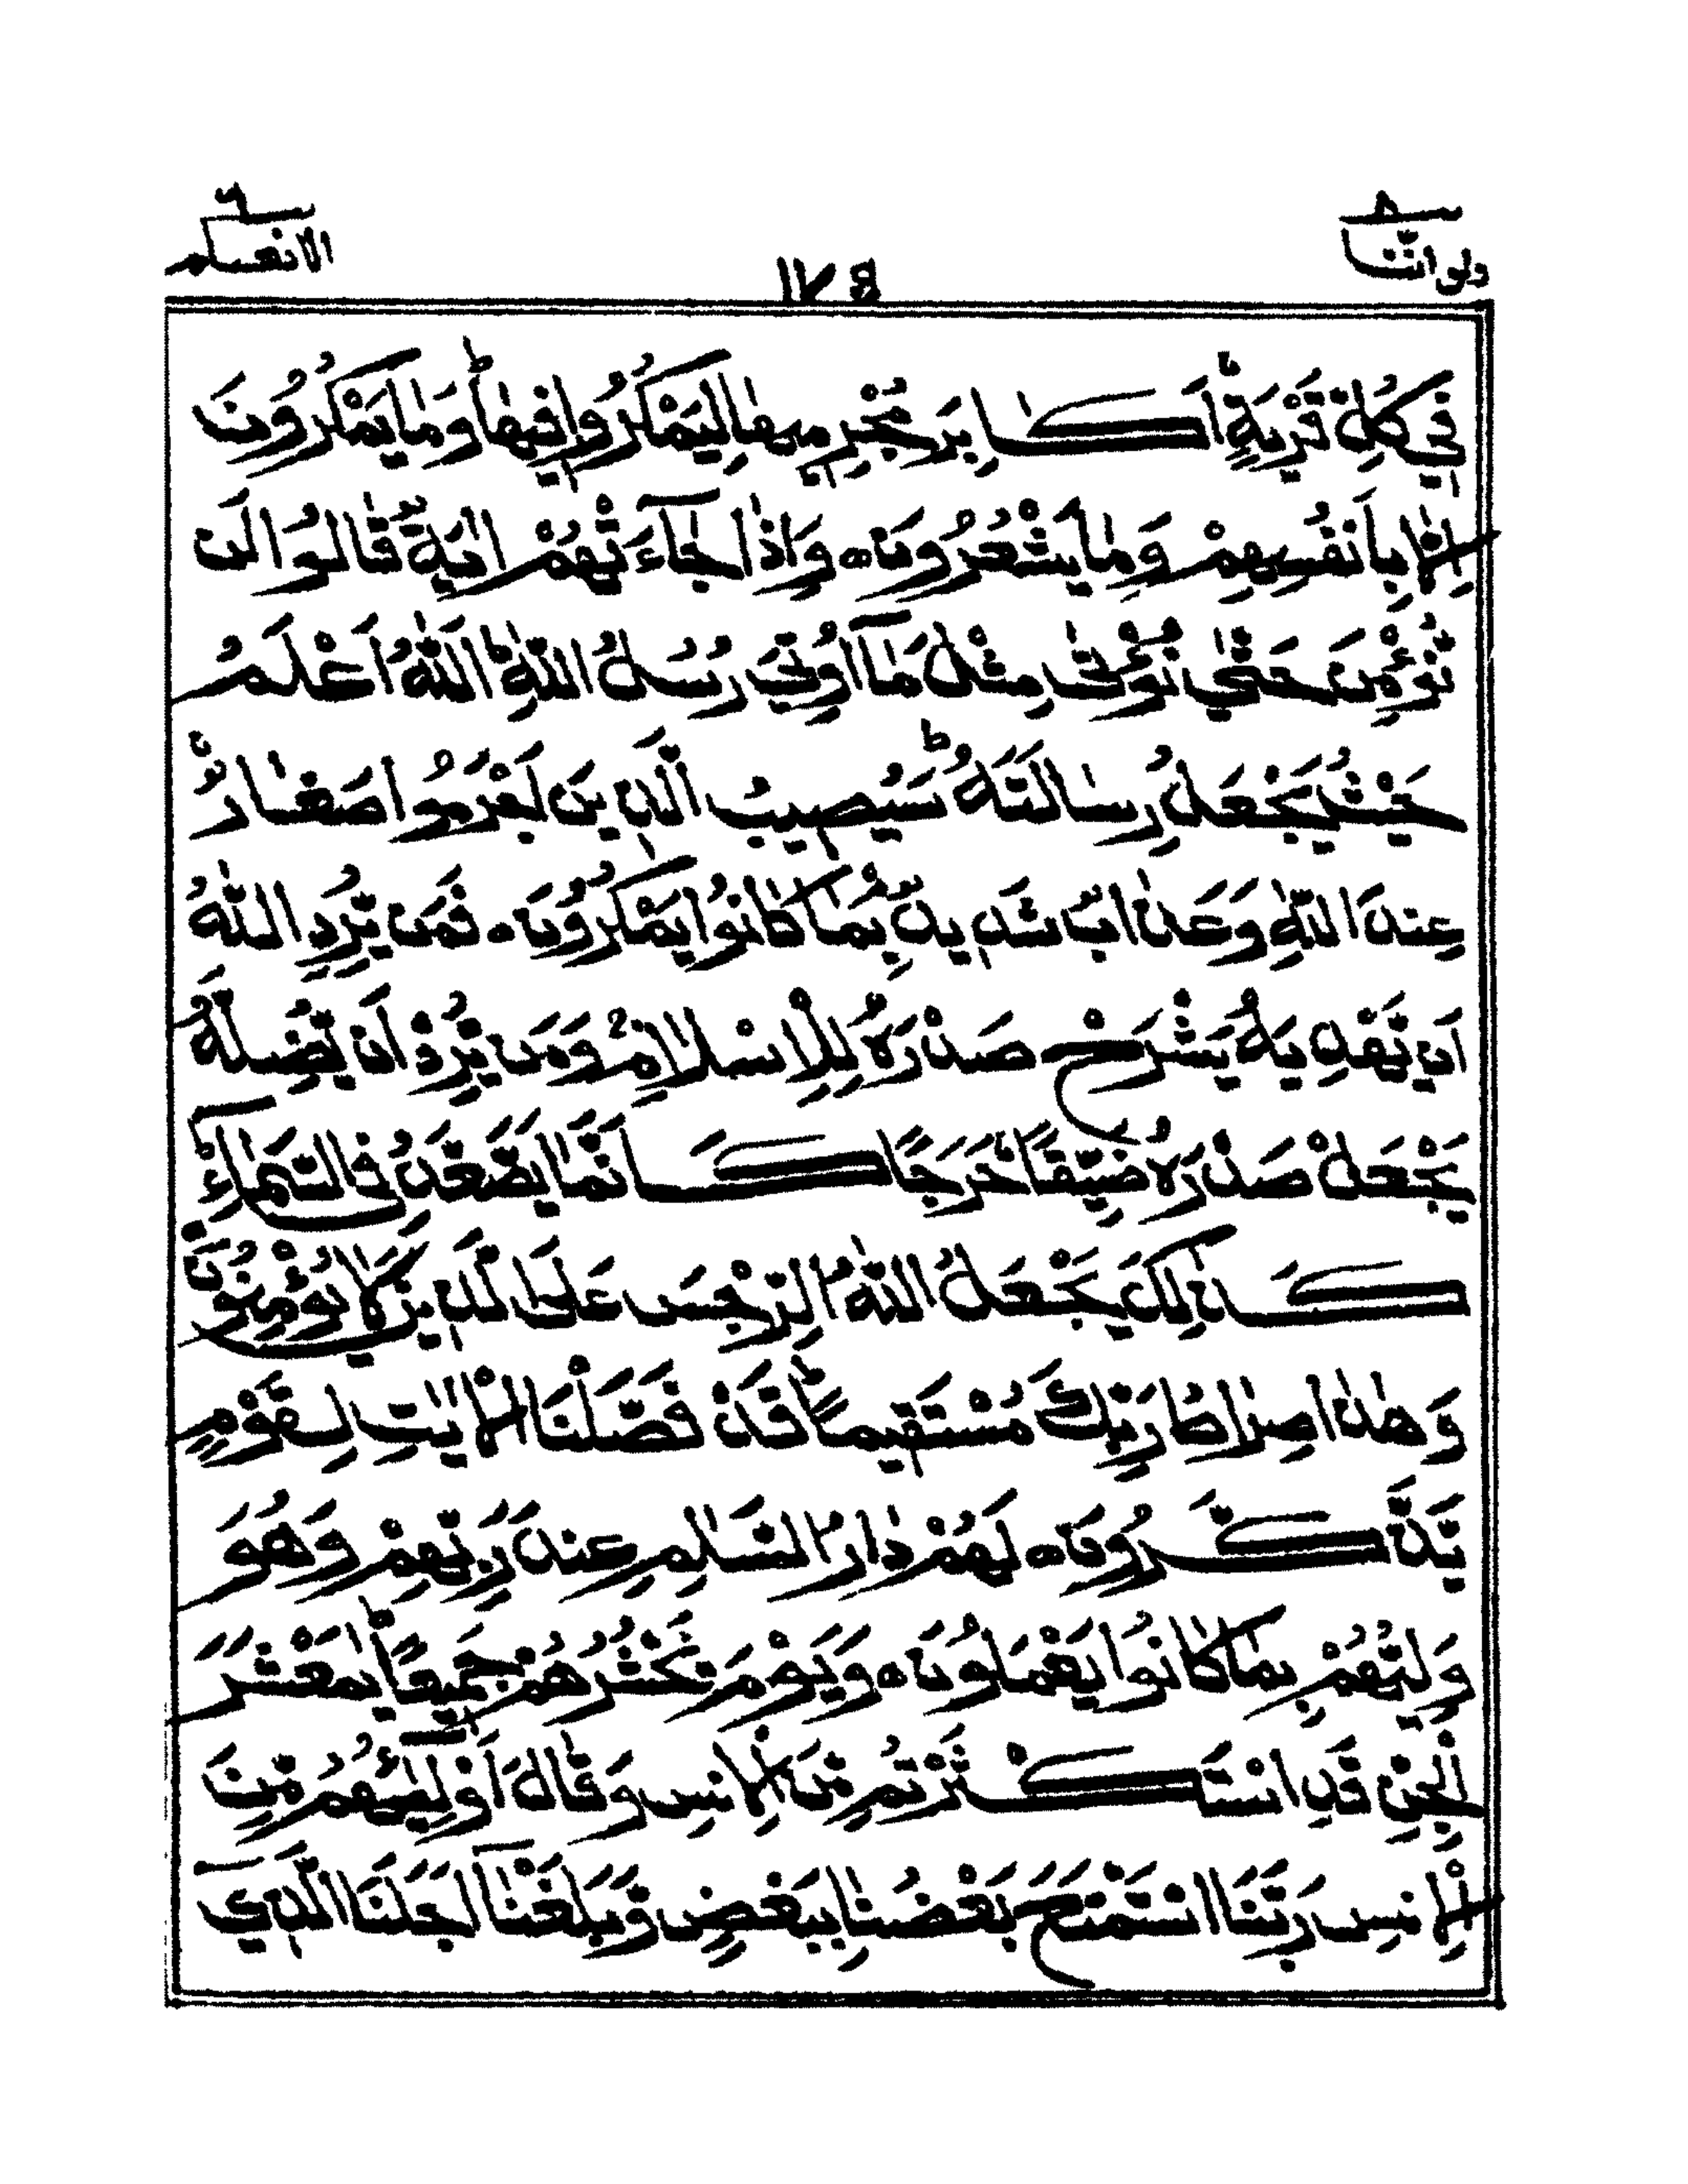 ولو اننا ٨
١٧٤
الانعام ٦
فِي كُلِّ قَرْيَةٍ اَكٰبِرَ مُجْرِمِيهَا لِيَمْكُرُوا فِيهَا ؕ وَمَا يَمْكُرُونَ
اِلَّا بِاَنْفُسِهِمْ وَمَا يَشْعُرُونَ ۝ وَاِذَا جَآءَتْهُمْ اٰيَةٌ قَالُوا لَن
نُّؤْمِنَ حَتّٰى نُؤْتٰى مِثْلَ مَآ اُوتِيَ رُسُلُ اللّٰهِ ؕ اَللّٰهُ اَعْلَمُ
حَيْثُ يَجْعَلُ رِسَالَتَهُ ؕ سَيُصِيبُ الَّذِينَ اَجْرَمُوا صَغَارٌ
عِندَ اللّٰهِ وَعَذَابٌ شَدِيدٌ بِّمَا كَانُوا يَمْكُرُونَ ۝ فَمَن يُّرِدِ اللّٰهُ
اَن يَّهْدِيَهُ يَشْرَحْ صَدْرَهُ لِلْاِسْلَامِ وَمَن يُّرِدْ اَن يُّضِلَّهُ
يَجْعَلْ صَدْرَهُ ضَيِّقًا حَرَجًا كَاَنَّمَا يَصَّعَّدُ فِي السَّمَآءِ ؕ
كَذٰلِكَ يَجْعَلُ اللّٰهُ الرِّجْسَ عَلَى الَّذِينَ لَا يُؤْمِنُونَ
وَهٰذَا صِرَاطُ رَبِّكَ مُسْتَقِيمًا ؕ قَدْ فَصَّلْنَا الْاٰيٰتِ لِقَوْمٍ
يَّذَّكَّرُونَ ۝ لَهُمْ دَارُ السَّلٰمِ عِندَ رَبِّهِمْ وَهُوَ
وَلِيُّهُمْ بِمَا كَانُوا يَعْمَلُونَ ۝ وَيَوْمَ نَحْشُرُهُمْ جَمِيعًا ؕ يٰمَعْشَرَ
الْجِنِّ قَدِ اسْتَكْثَرْتُم مِّنَ الْاِنسِ وَقَالَ اَوْلِيٰٓئُهُمْ مِّنَ
الْاِنسِ رَبَّنَا اسْتَمْتَعَ بَعْضُنَا بِبَعْضٍ وَّبَلَغْنَآ اَجَلَنَا الَّذِيٓ